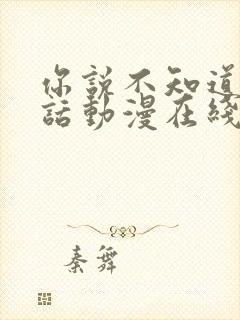 你說不知道
話動漫在綫
秦舞